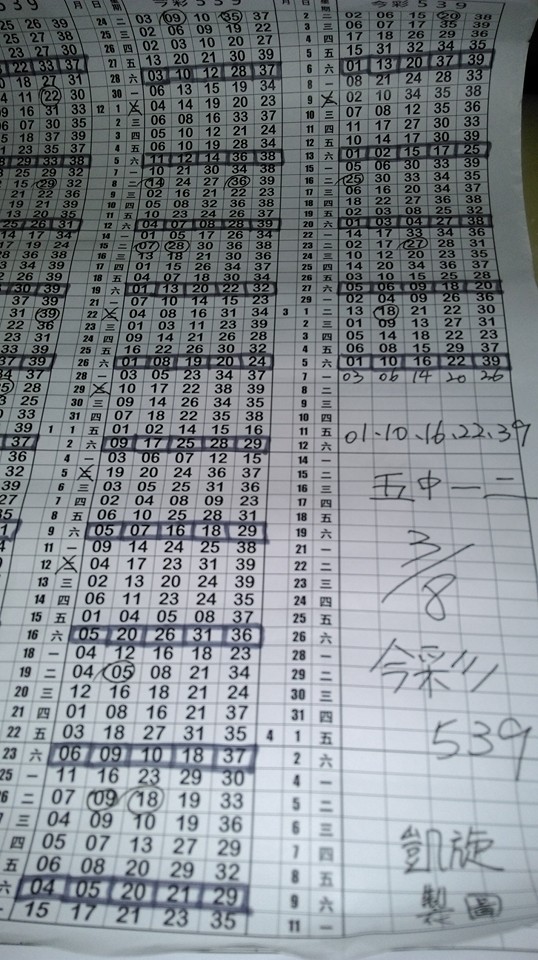 539 月 日
27 30
22 33 37
18 27 31
04 11 22 30
16 31 33
06 07 30 35
18 37 39
23 35 37
28 29 33 38
25 29 32
15 29 32
21 22 36
19 21 39
13 20 35
25 26 31
15 17 34
17 19 24
36 38
34 39
30 39
37 39
39
22 36
33 39
37 39
25 28
33
39
37
36
32
35
今彩539 月 日 星期
24 二 03 09 10 35 37
25 三 02 06 09 19 22
26 四 02 03 10 20 27
27 五 13 20 21 30 39
28 六 03 10 12 28 37
30 一 06 13 15 19 34
12 1 二 04 14 19 20 23
2 三 06 08 16 33 37
3 四 05 10 12 21 24
4 五 06 10 19 28 34
5 六 11 12 14 36 38
7 一 10 21 30 34 38
8 二 14 24 27 36 38
9 三 02 16 21 22 23
10 四 05 08 32 36 38
11 五 10 23 24 26 37
12 六 04 07 08 28 39
14 一 01 05 17 26 34
15 二 07 28 30 36 38
16 三 13 18 21 30 36
17 四 01 15 26 34 37
18 五 04 07 18 30 34
19 六 01 13 20 22 32
21 一 07 10 14 15 23
22 二 04 08 16 31 34
23 三 01 03 11 23 39
24 四 09 14 21 26 28
25 五 16 22 26 30 32
26 六 01 08 19 20 24
28 一 03 05 23 34 37
29 二 10 17 22 38 39
30 三 09 14 26 34 35
31 四 07 18 22 35 38
1 1 五 01 02 14 15 16
2 六 09 17 25 28 29
4 一 03 06 07 12 15
5 二 19 20 24 36 37
6 三 03 05 25 31 36
7 四 02 04 08 09 23
8 五 06 10 25 28 31
9 六 05 07 16 18 29
11 一 09 14 24 25 38
12 二 04 17 23 31 39
13 三 02 13 20 24 39
14 四 06 11 23 24 35
15 五 01 04 05 08 37
16 六 05 20 26 31 36
18 一 04 12 16 18 23
19 二 04 05 08 21 34
20 三 12 16 18 21 24
21 四 01 08 16 21 37
22 五 03 18 27 31 35
23 六 06 09 10 18 37
25 一 11 16 23 29 30
26 二 07 09 18 19 33
三 04 09 10 19 36
四 05 07 13 27 29
五 06 08 20 29 32
六 04 05 20 21 29
一 15 17 21 23 35
今彩539
2 二 02 06 15 30 38
3 三 06 07 17 37 39
4 四 17 18 26 29 36
5 五 15 31 32 34 35
6 六 01 13 20 37 39
8 一 08 21 24 28 33
9 二 02 10 34 35 38
10 三 07 08 12 35 36
11 四 11 17 27 30 33
12 五 10 14 17 30 39
13 六 01 02 15 17 25
15 一 05 06 30 33 39
16 二 25 30 35 36 39
17 三 06 16 20 34 37
18 四 18 22 27 36 38
19 五 02 03 08 25 32
20 六 01 03 04 27 38
22 一 14 17 33 34 36
23 二 02 17 27 28 31
24 三 10 12 20 23 35
25 四 14 20 34 36 37
26 五 03 10 15 25 28
27 六 05 06 09 18 20
29 一 02 04 09 26 36
3 1 二 13 18 21 22 30
2 三 01 09 13 27 31
3 四 05 14 18 22 23
4 五 06 08 15 29 37
5 六 01 10 16 22 39
7 一 03 06 14 20 26
8 二
9 三
10 四
11 五
12 六
14 一
15 二
16 三
17 四
18 五
19 六
21 一
22 二
23 三
24 四
25 五
26 六
28 一
29 二
30 三
31 四
4 1 五
2 六
4 一
5 二
6 三
7 四
8 五
9 六
11 一
01、10、16、22、39
五中一二
3/8
今彩
539
凱旋
製圖